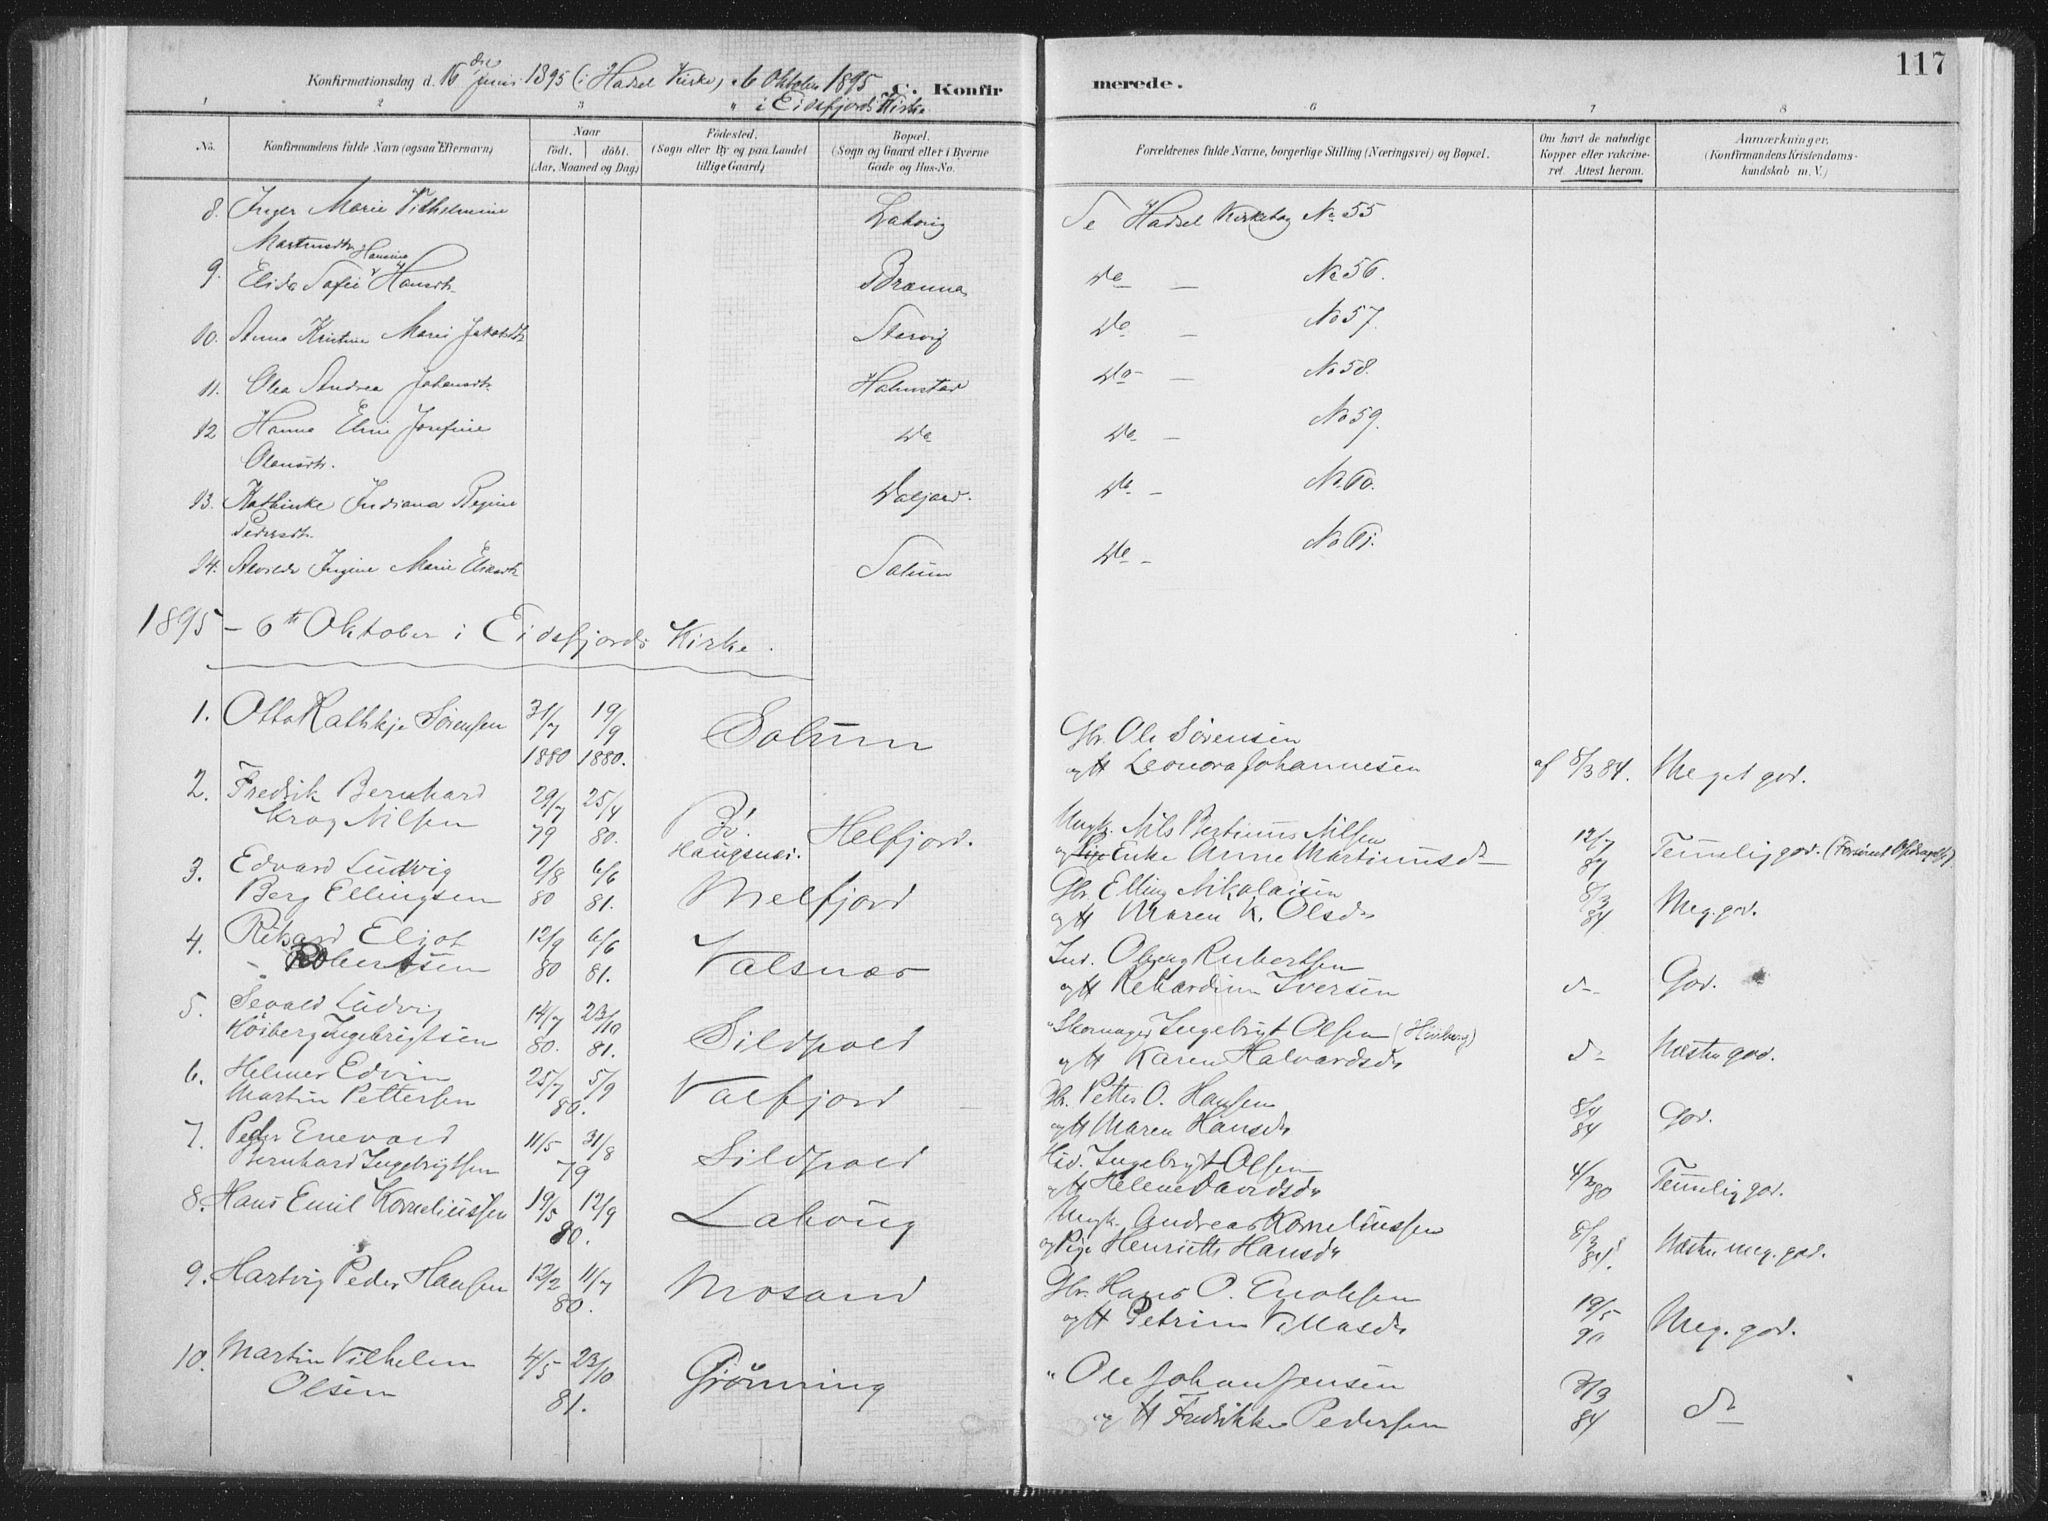 117
Konfirmationsdag d. 16de juni 1895 (i Hadsel Kirke) 6 Oktober 1895 C. Konfirmerede.
" i Eidsfjords Kirke
1 2 3 6 7 8
No. Konfirmandens fulde Navn (ogsaa Efternavn) Naar født, døbt. (Aar, Maaned og Dag) Fødested. (Sogn eller By og paa Landet tillige Gaard) Bopæl. (Sogn og Gaard eller i Byerne Gade og Hus-No. Forældrenes fulde Navne, borgerlige Stilling (Næringsvei) og Bopæl. Om havt de naturlige Kopper eller vakcineret. Attest herom. Anmærkninger. (Konfirmandens Kristendomskundskab m. V.)
8. Inger Marie Vilhelmine Lahvig Se Hadsel Kirkebog No 55
Martinsdtr.
9. Elida Sofie Hansine Hansdtr. Brænna do — No 56.
10. Anna Kristine Marie Jakobsdtr. Storvig do — No 57.
11. Olea Andrea Johansdtr. Holmstad do — No 58.
12 Hanna Eline Josefine do do — No 59.
Olausdtr.
13. Kathinke Indiana Regine Valfjord. do — No 60.
Pedersdtr.
14. Alvilde Ingine Marie Eliasdtr. Solum do — No 61.
1895 – 6te Oktober i Eidsfjords Kirke.
1. Otto Rathkje Sørensen 31/7 1880 19/9 1880. Solum Gbr. Ole Sørensen
og H Leonora Johannesen af 8/3 84. Meget god.
2. Fredrik Bernhard 29/7 79 25/4 80. Bø! Helfjord. Ungk. Nils Bertinus Nilsen 12/7 87
Krog Nilsen Haugsnes. og Enke Anne Martinusd. Temmelig god.
3. Edvard Ludvig 2/8 80 6/6 81. Melfjord Gbr. Elling Nikolaisen 8/3 84 Meg. god.
Berg Ellingsen og H Maren K. Olsdr
4. Rikard Eliot 12/9 80 6/6 81. Valsnæs Ind. Rubertsen
Robertsen og H Rikardine Iversen d– God.
5. Sevald Ludvig 14/7 80. 23/10 81. Sildpold Skomager Ingebrigt Olsen (Höiberg)
Höiberg Ingebrigtsen og H Karen Halvardsdr d– Næsten god.
6. Helmer Edvin 25/7 5/9 80. Valfjord Gbr. Petter O. Hansen 8/4 84 God.
Martin Pettersen og H Maren Hansdr
7. Peder Enevald 11/5 31/8 79 Sildpold Hsd. Ingebrigt Olsen
Bernhard Ingebrigtsen og H Helene Davidsdr Temmelig god.
8. Hans Emil Korneliussen 19/5 12/9 80. Lahoug Ungk. Andreas Korneliussen 8/3 84.
og Pige Henriette Hansdr Næsten meg. god.
9. Hartvig Peder Hansen 12/2 11/7 80. Mosand Gbr. Hans O. Enoksen 19/5 90 Meg. god.
og H Petrine Villasdr
10. Martin Vilhelm 4/5 23/10 81. Grönning " Ole Johan Jensen 7/3 84 d–
Olsen og H Fredrikke Pedersen